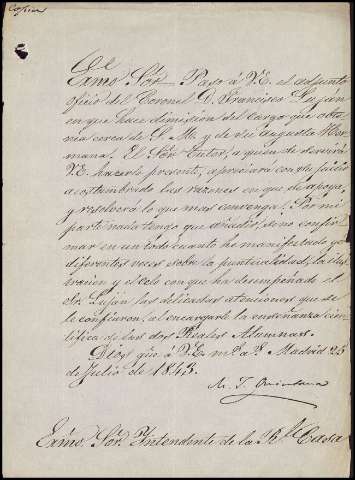 Copia
Exmo Sôr. Paso á V.E. el adjunto
oficio del Coronel D. Francisco Luján
en que hace dimision del cargo que obte
nia cerca de S. M. y de su augusta Her
mana. El Sôr. Tutor, á quien se servirá
V.E. hacerlo presente, apreciará con su juicio
acostumbrado las razones en que se apoya,
y resolverá lo que mas convenga. Por mi
parte nada tengo que añadir, sino confir
mar en un todo cuanto he manifestado ya
diferentes veces sobre la puntualidad, la ilus
tracion y el celo con que ha desempeñado el
Sr. Luján las delicadas atenciones que se
le confiaron, al encargarle la enseñanza cien
tifica de las dos Reales Alumnas.
Dios gue á V.E. ms. as. Madrid 25
de Julio de 1843.
M. J. Quintana
Exmo Sôr. Intendente de la Rl. Casa